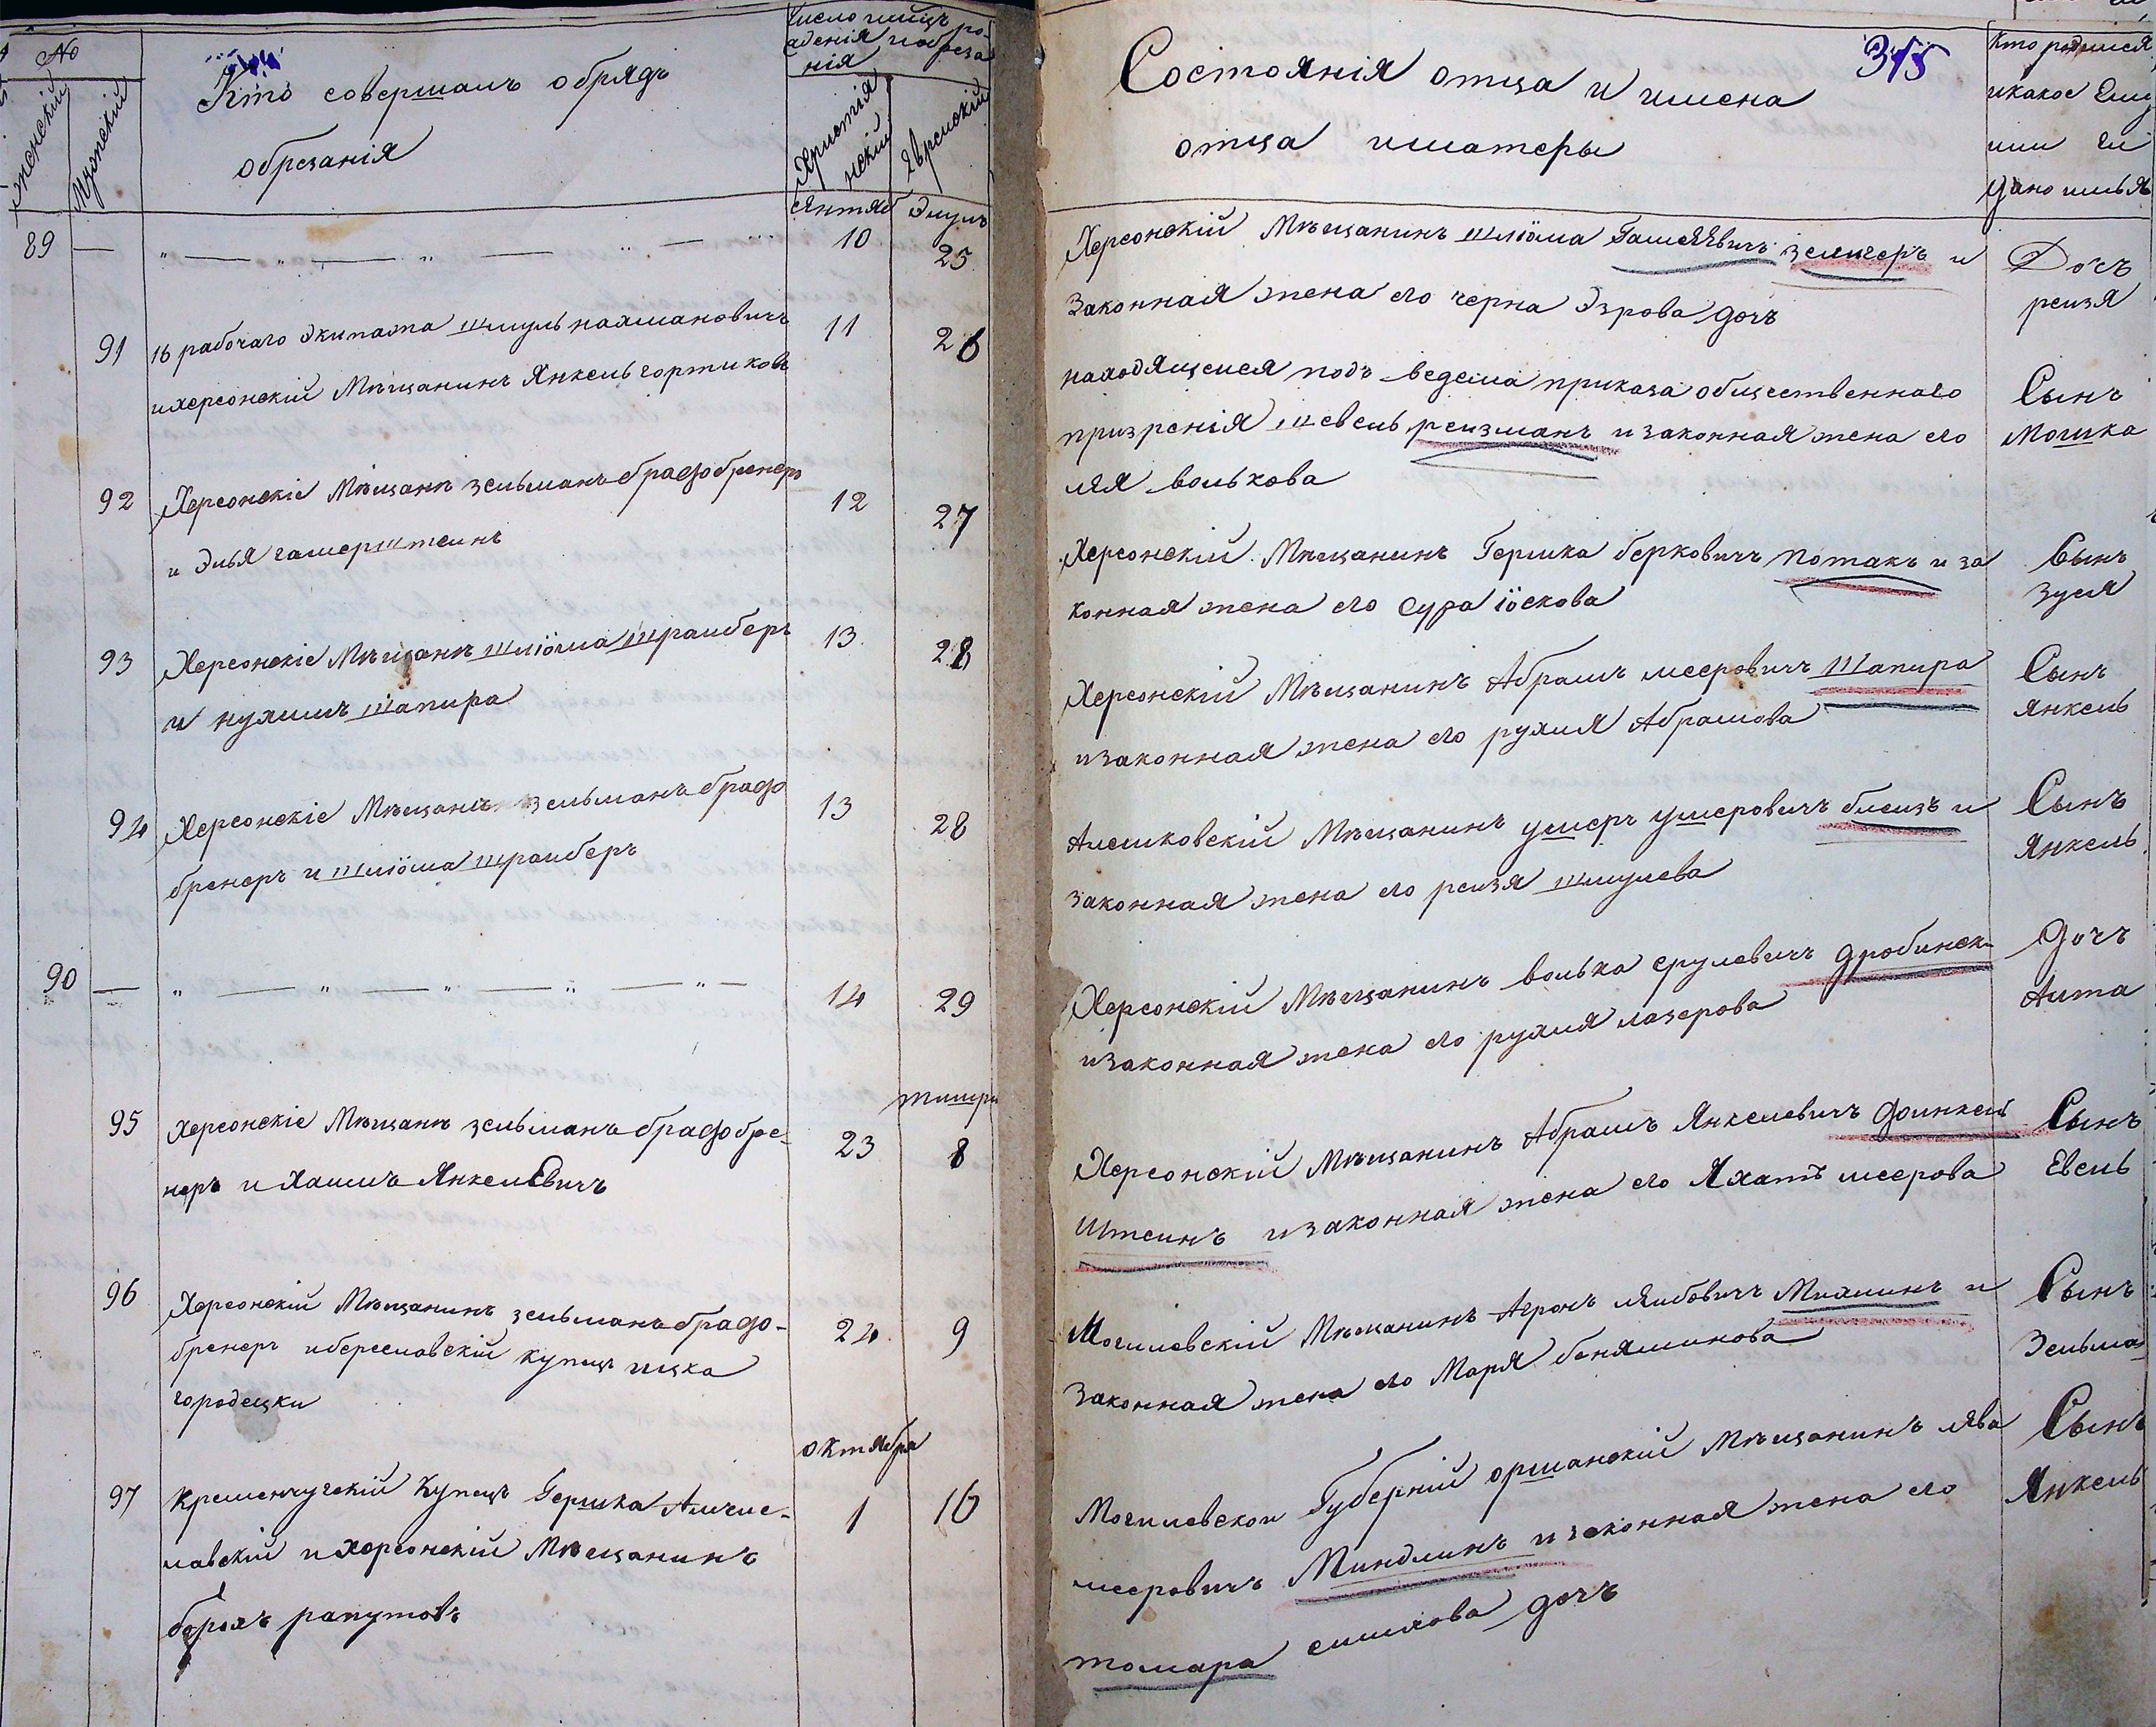 №
женскій
Мужскій
Кто совершалъ обрядъ
обрезанія
Число
нія
Христіа
нскій
Еврейскій
сентяб
Элулъ
89 — „ — „ — „ — „ — „ 10 25
91 16 рабочаго экипажа шмуль нахмановичъ 11 26
и херсонскій Мѣщанинъ Янкель гортиковъ
92 Херсонскіе Мѣщанѣ зельманъ брадобренеръ 12 27
и Элья гамерштеинъ
93 Херсонскіе Мѣщанѣ шліома штраиберъ 13 28
и нухимъ шапира
94 Херсонскіе Мѣщанѣ зельманъ брадо 13 28
бренеръ и шліома штраиберъ
90 — „ — „ — „ — „ — „ — 14 29
тишри
95 Херсонскіе Мѣщанѣ зельманъ брадобре- 23 8
неръ и Хаимъ Янкелевичъ
96 Херсонскій Мѣщанинъ зельманъ брадо- 24 9
бренеръ и береславскій купецъ ицка
городецки
октября
97 Кременчугскій Купецъ Гершка 1 16
лавскій и Херсонскій Мѣщанинъ
борохъ рапутовъ
Состоянія отца и имена
отца и матеры
315
Кто родился
и какое Ему
или Ей
дано имья
Херсонскій Мѣщанинъ шліома зелигеръ и
Законная жена его черна Эзрова дочъ
Дочъ
реизя
находящемся подъ ведема приказа общественнаго
призренія шевель реизманъ и законная жена его
лея волькова
Сынъ
Мошка
Херсонскій Мѣщанинъ Гершка берковичъ потакъ и за
конная жена его сура іоскова
Сынъ
Зуся
Херсонскій Мѣщанинъ Абрамъ мееровичъ Шапира
и законная жена его рухля Абрамова
Сынъ
янкель
Алешковскій Мѣщанинъ ушеръ ушеровичъ блеизъ и
законная жена его реизя шмулева
Сынъ
Янкель
Херсонскій Мѣщанинъ волька срулевичъ дробинск
и законная жена его рухля лазерова
дочъ
Аита
Херсонскій Мѣщанинъ Абрамъ Янкелевичъ финкель
Штеинъ и законная жена его меерова
Сынъ
Евель
Могилевскій Мѣщанинъ Агронъ леибовичъ Михлинъ и
Законная жена его Маря беняминова
Сынъ
Зельма
Могилевскои Губерніи оршанскій Мѣщанинъ лява
мееровичъ Миндлинъ и законная жена его
томара симхова дочъ
Сынъ
Янкель